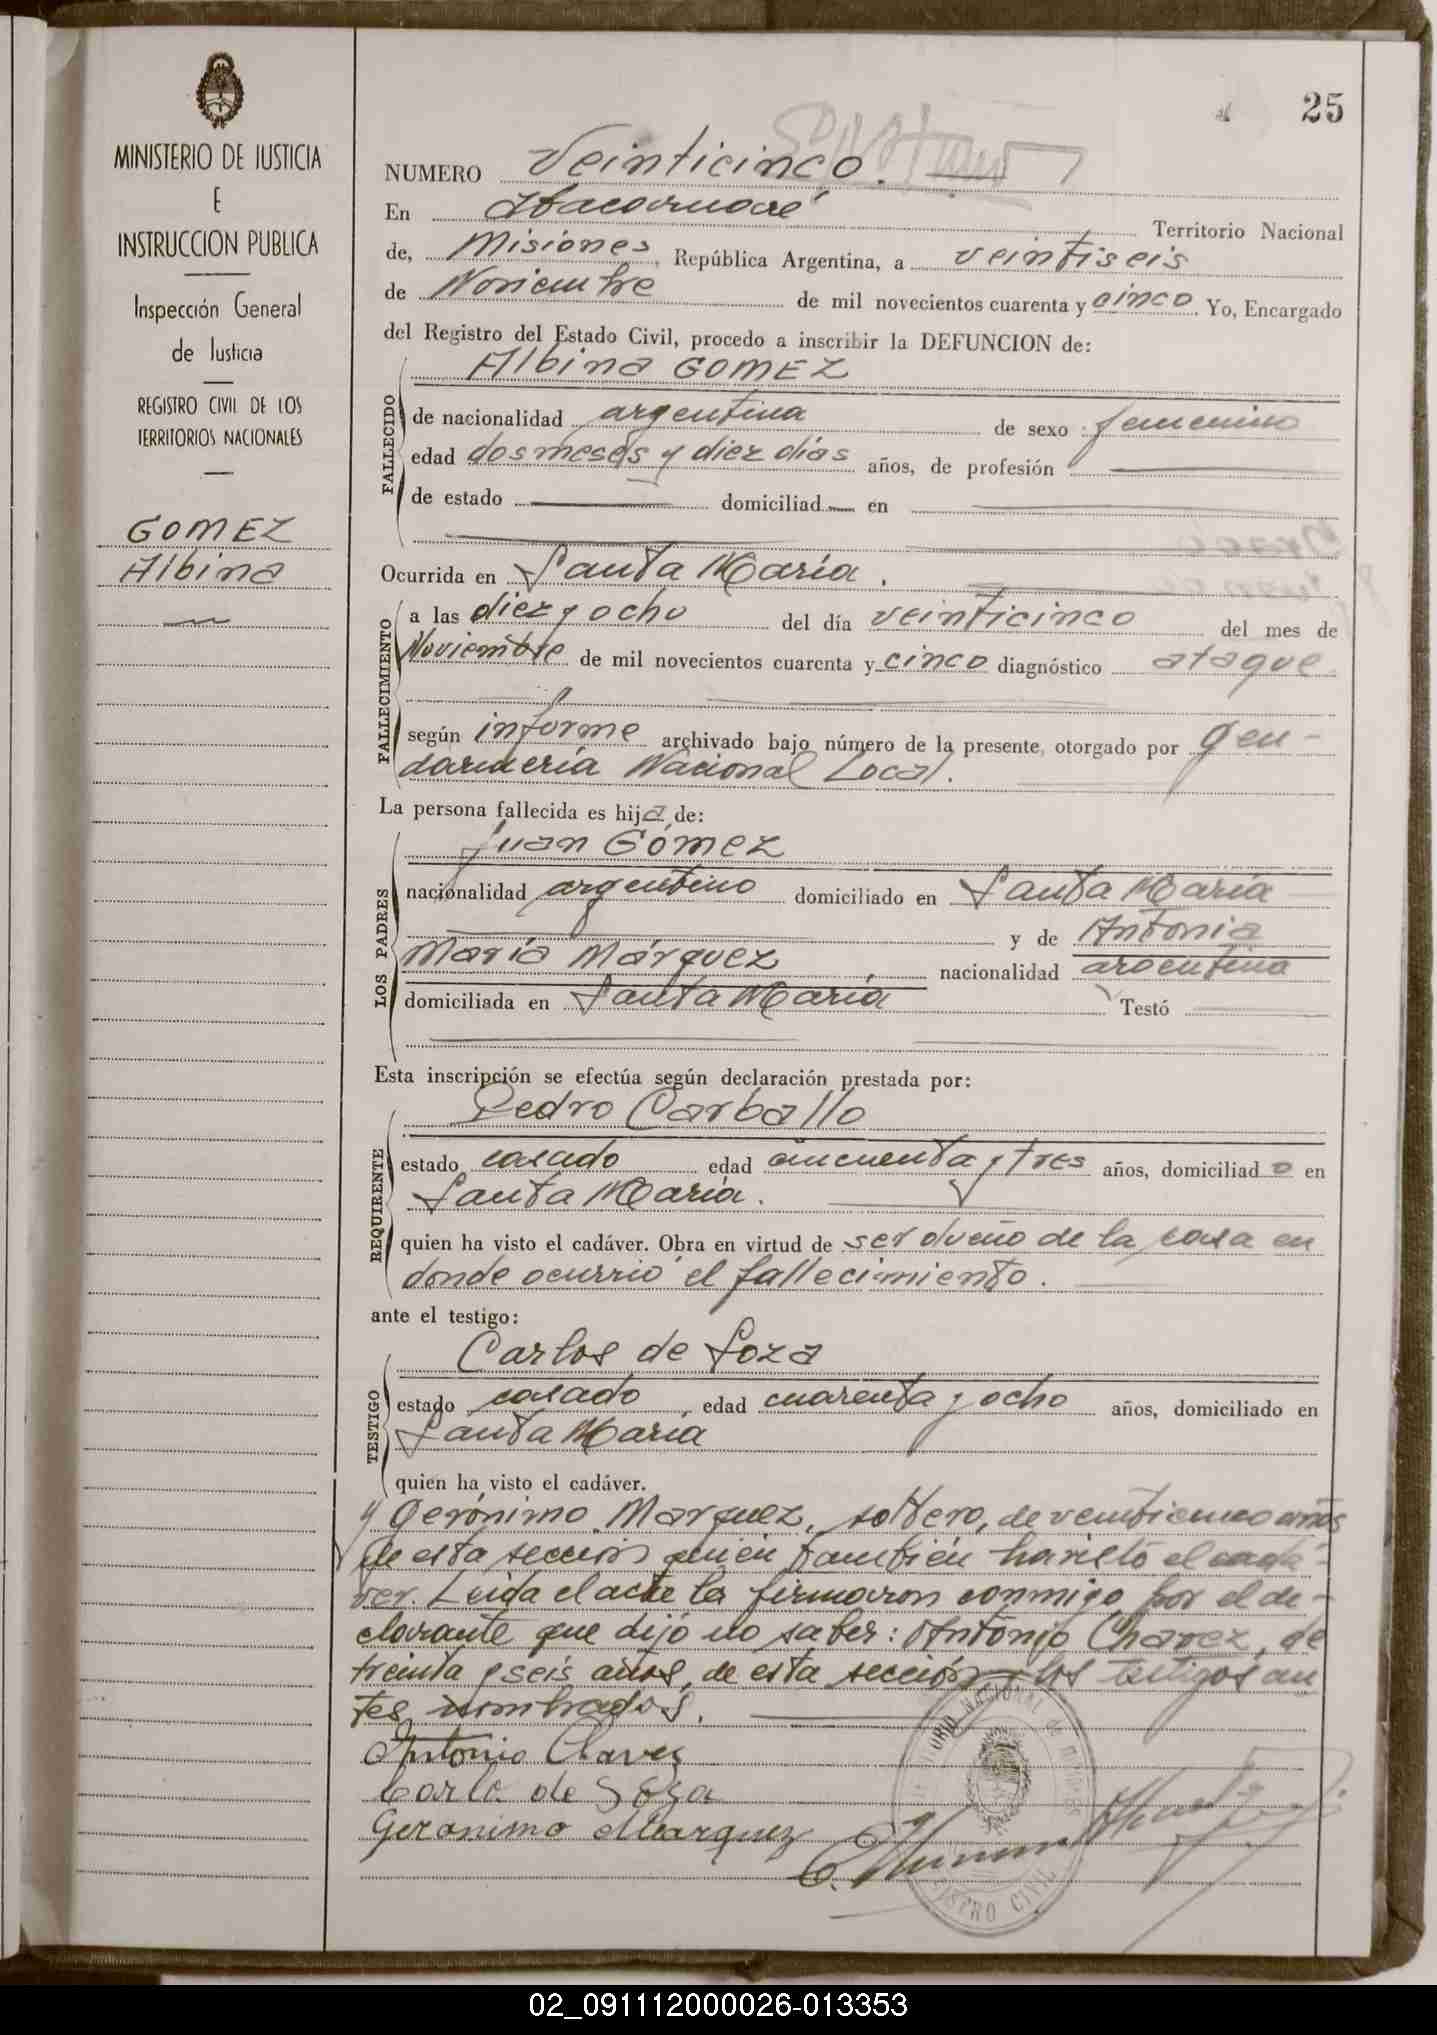 25
MINISTERIO DE JUSTICIA
E
INSTRUCCION PUBLICA
Inspección General
de Justicia
REGISTRO CIVIL DE LOS
TERRITORIOS NACIONALES
GOMEZ
Albina
NUMERO Veinticinco.
En Itacaruaré Territorio Nacional
de, Misiones, República Argentina, a veintiseis
de Noviembre de mil novecientos cuarenta y cinco Yo, Encargado
del Registro del Estado Civil, procedo a inscribir la DEFUNCION de:
Albina GOMEZ
FALLECIDO
de nacionalidad argentina de sexo femenino
edad dos meses y diez días años, de profesión
de estado domiciliad en
Ocurrida en Santa María.
FALLECIMIENTO
a las diez y ocho del día veinticinco del mes de
Noviembre de mil novecientos cuarenta y cinco diagnóstico ataque
según informe archivado bajo número de la presente, otorgado por gen-
darmería Nacional Local.
La persona fallecida es hija de:
Juan Gómez
LOS PADRES
nacionalidad argentino domiciliado en Santa María
y de Antonia
María Márquez nacionalidad argentina
domiciliada en Santa María Testó
Esta inscripción se efectúa según declaración prestada por:
Pedro Carballo
REQUIRENTE
estado casado edad cincuenta y tres años, domiciliado en
Santa María.
quien ha visto el cadáver. Obra en virtud de ser dueño de la casa en
donde ocurrió el fallecimiento.
ante el testigo:
Carlos de Soza
TESTIGO
estado casado, edad cuarenta y ocho años, domiciliado en
Santa María
quien ha visto el cadáver.
y Gerónimo Marquez, soltero, de veinticinco años
de esta sección quien también ha visto el cadá-
ver. Leida el acta la firmaron conmigo, por el de-
clarante que dijo no saber: Antonio Chavez, de
treinta y seis años, de esta sección y los testigos an
tes nombrados.
Antonio Chavez
Carlo de Soza
Geronimo Marquez
REGISTRO CIVIL
02_091112000026-013353